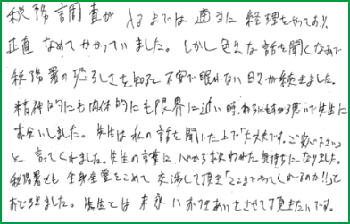 税務調査が入るまでは適当に経理をやっており、
正直なめてかかっていました。しかし色々な話を聞くなかで
税務署の恐ろしさを知り、不安で眠れない日々が続きました。
精神的にも肉体的にも限界に近い時、わらにもすがる思いで先生に
お会いしました。先生は私の話を聞いた上で「大丈夫です。ご安心ください」
と言ってくれました。先生の言葉に心から救われた気持ちになりました。
税務署とも全身全霊をこめて交渉して頂き「ここまでやってくれるのか!!」って
おどろきました。先生とは末永くお付きあいさせて頂きたいです。